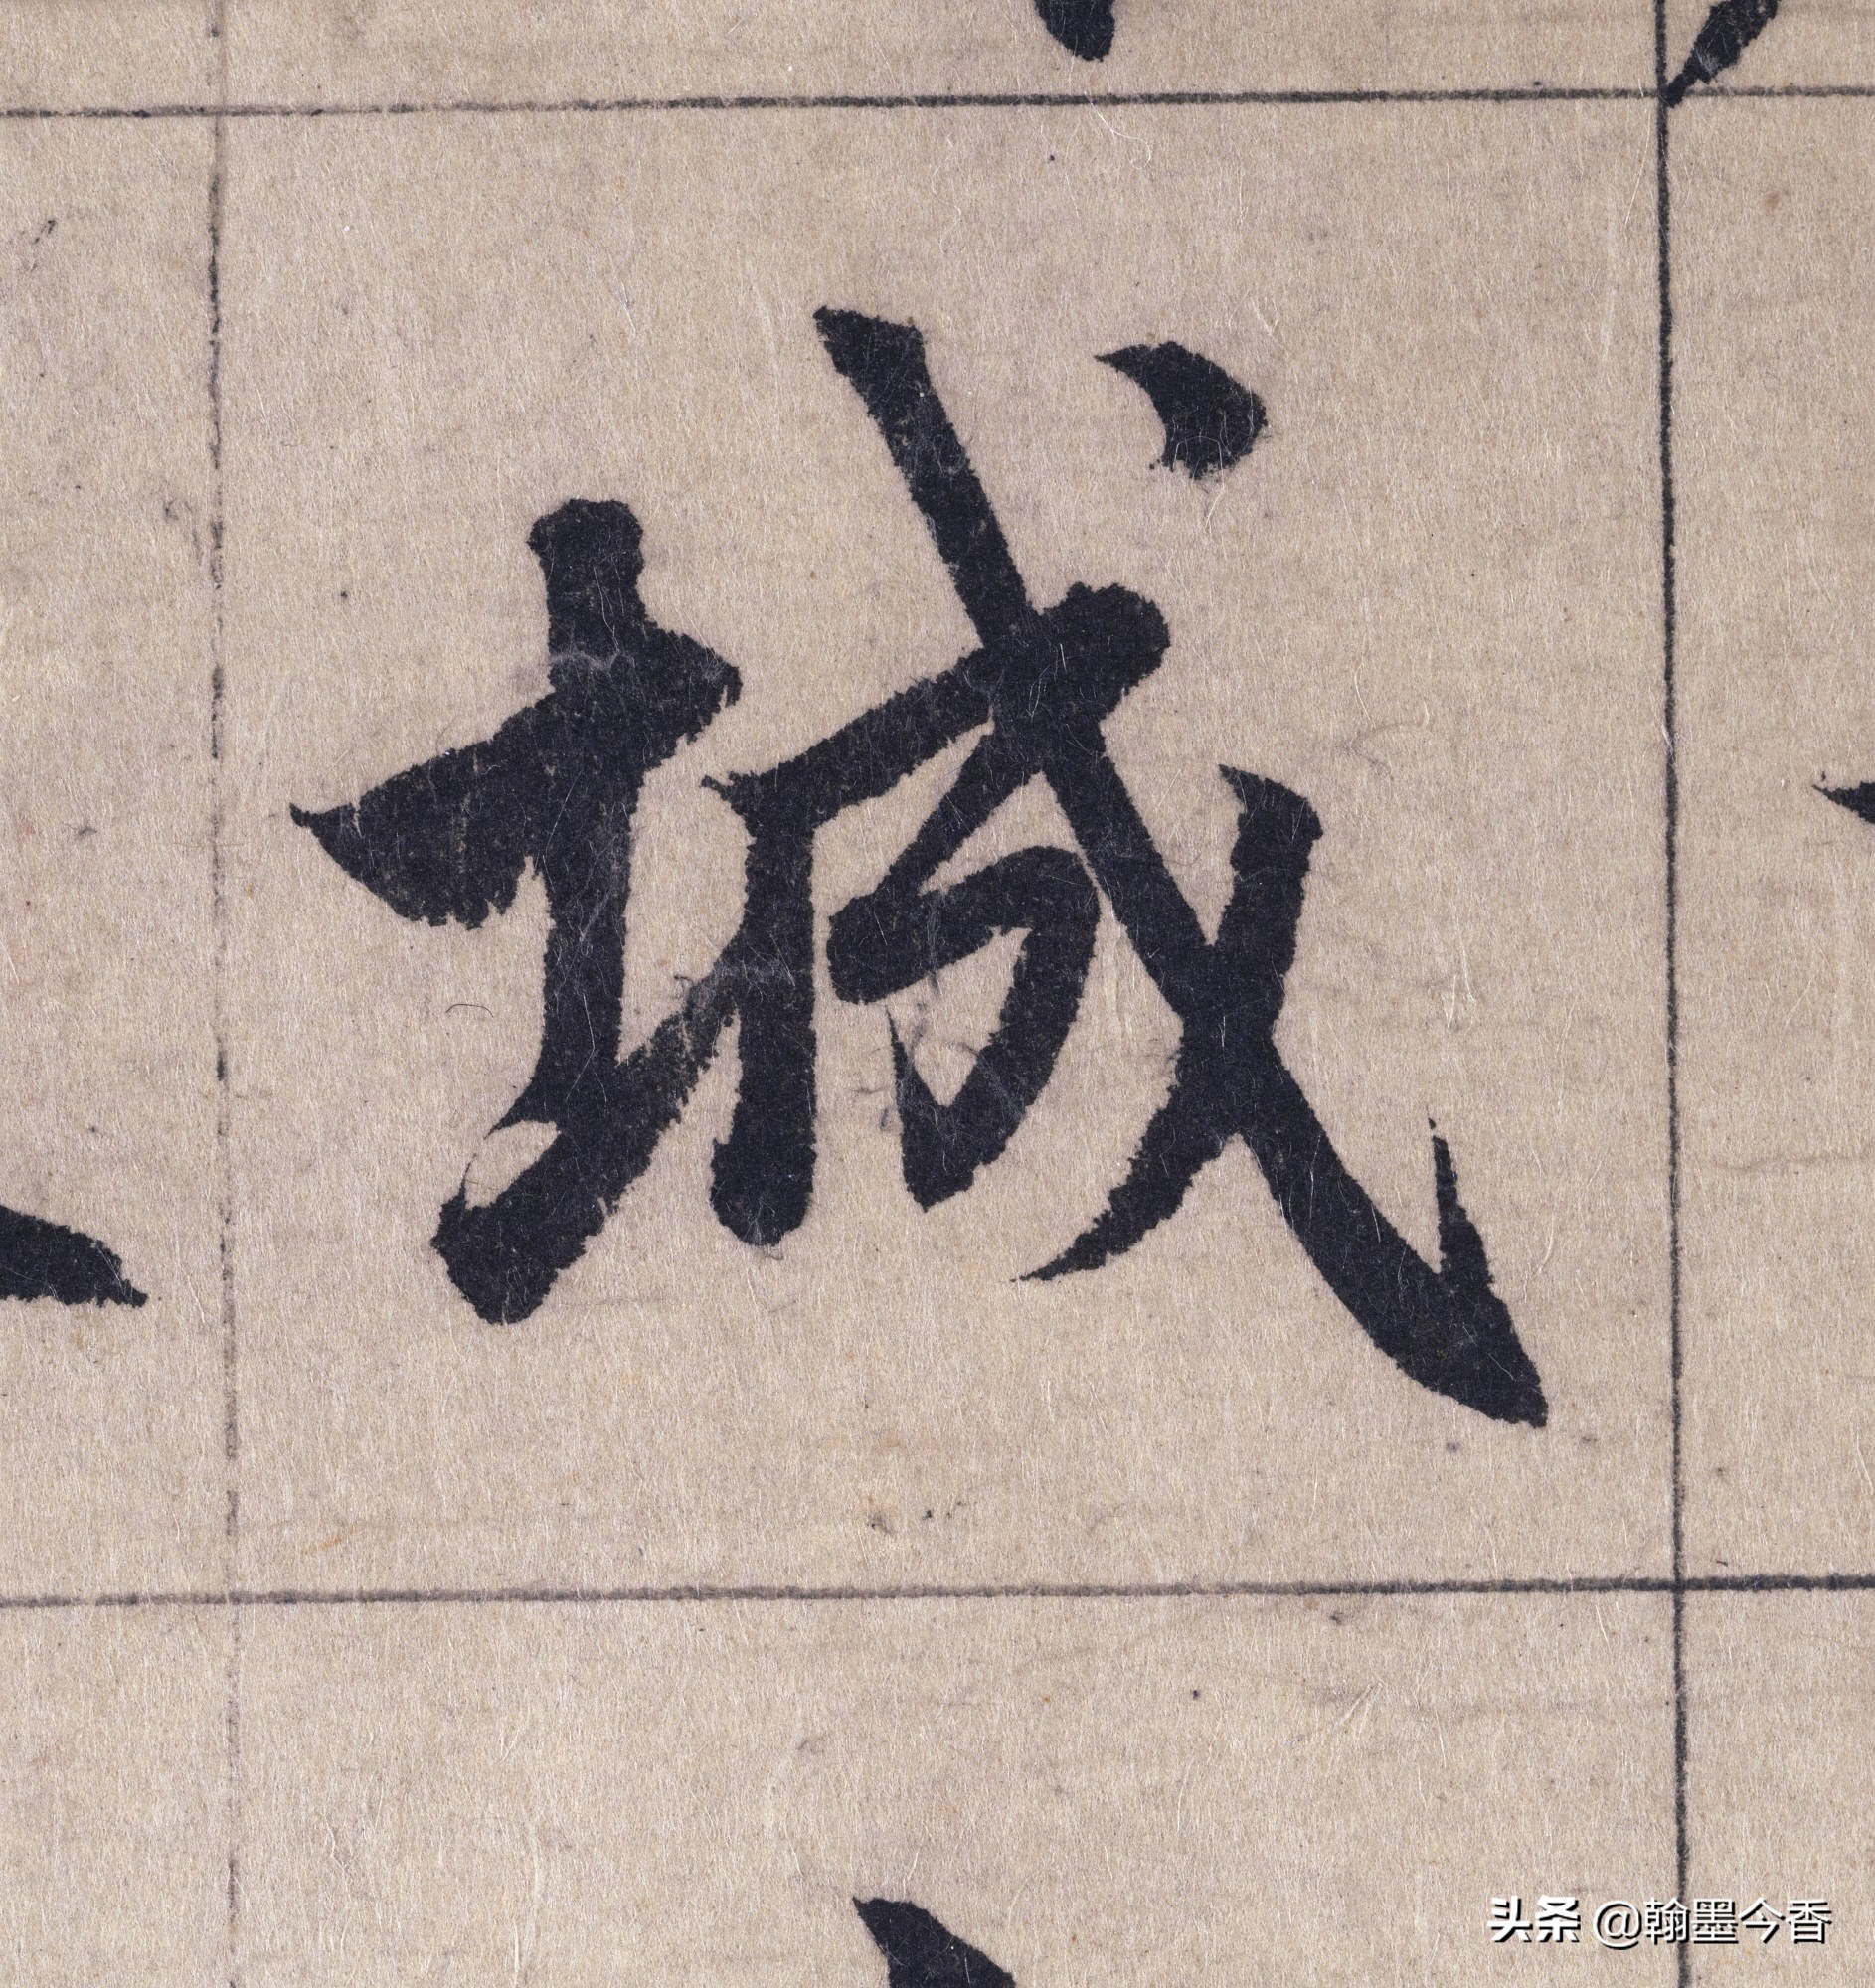 城
头条 @翰墨今香